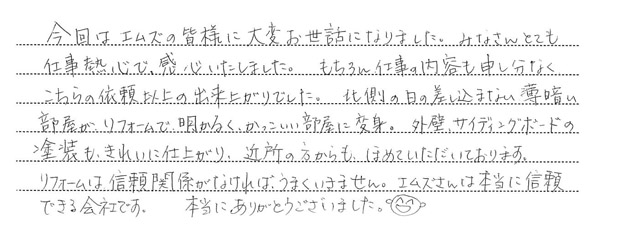 今回は エムズの皆様に 大変お世話になりました。 みなさんとても
仕事熱心で、感心いたしました。 もちろん仕事の内容も申し分なく
こちらの依頼以上の出来上がりでした。 北側の日の差し込まない薄暗い
部屋が、リフォームで、明かるく、かっこいい部屋に変身。 外壁、サイディングボードの
塗装も、きれいに仕上がり、近所の方からも、ほめていただいております。
リフォームは、信頼関係がなければ、うまくいきません。エムズさんは本当に信頼
できる会社です。 本当にありがとうございました。